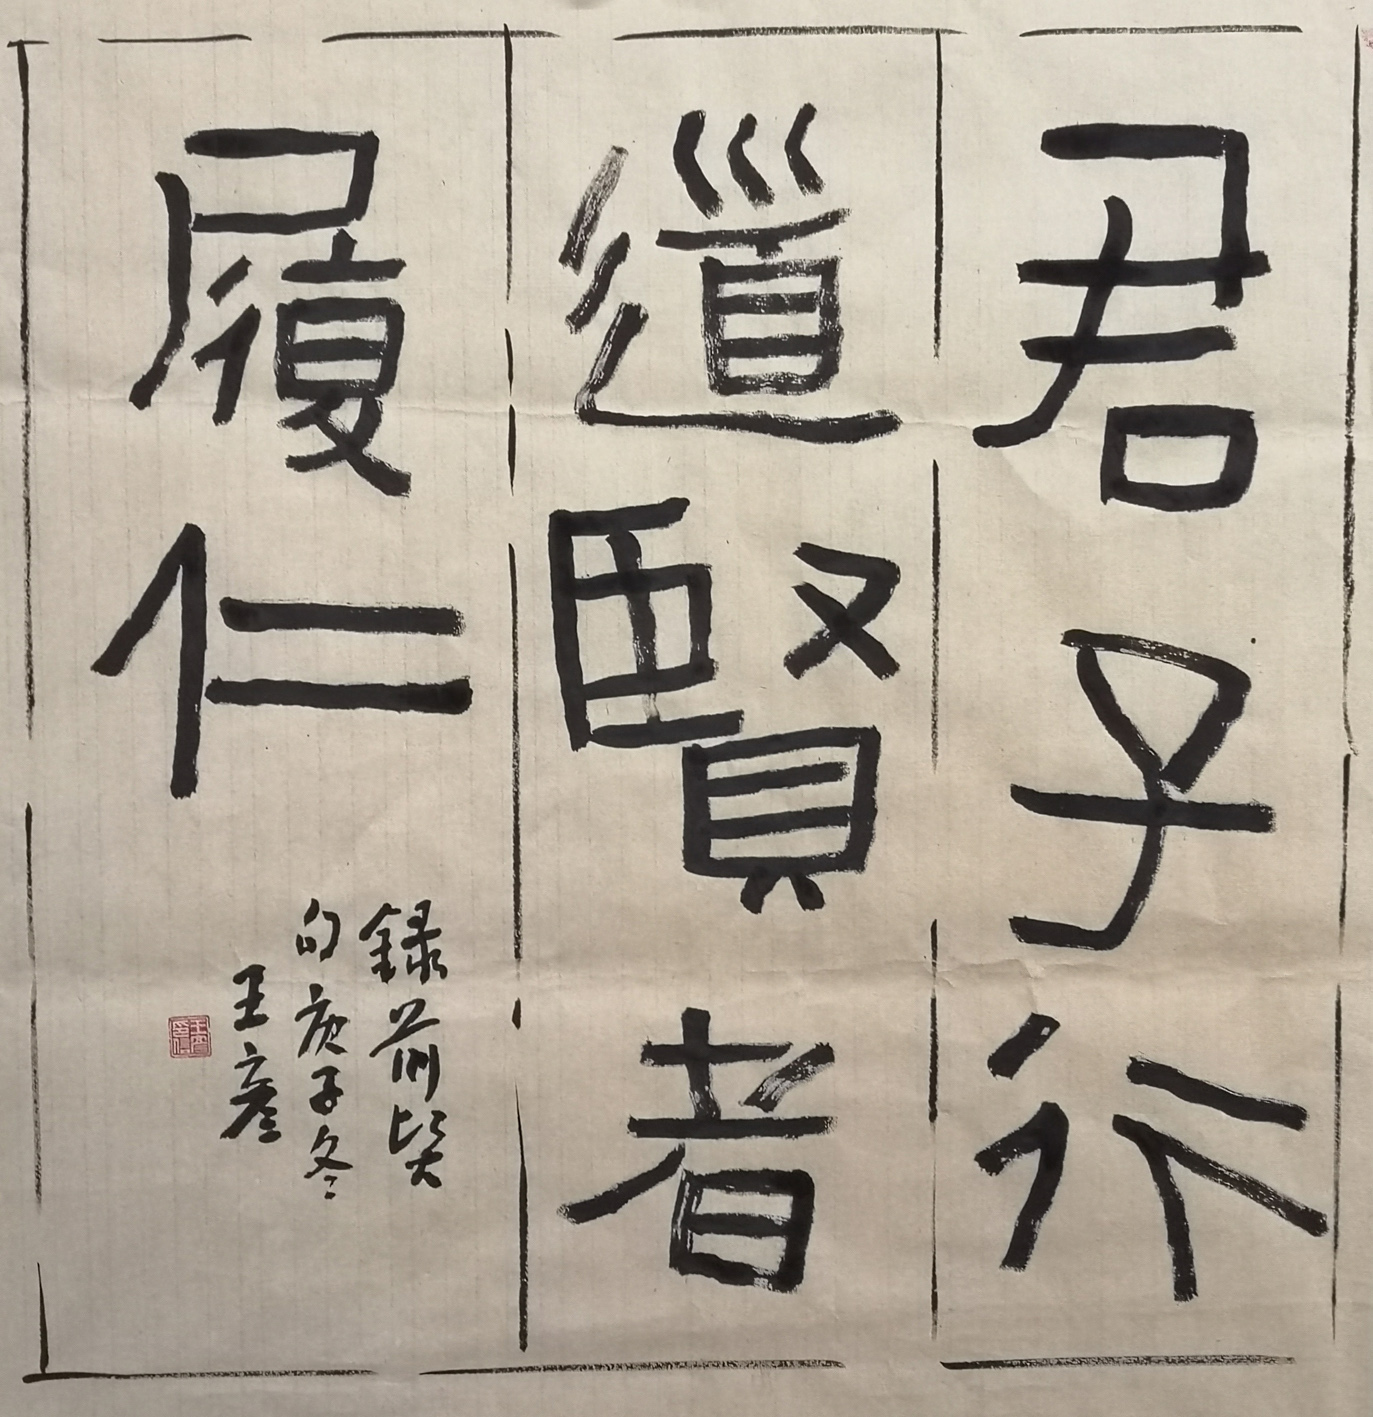 君子行
道賢者
履仁
録前賢
句庚子冬
王彥